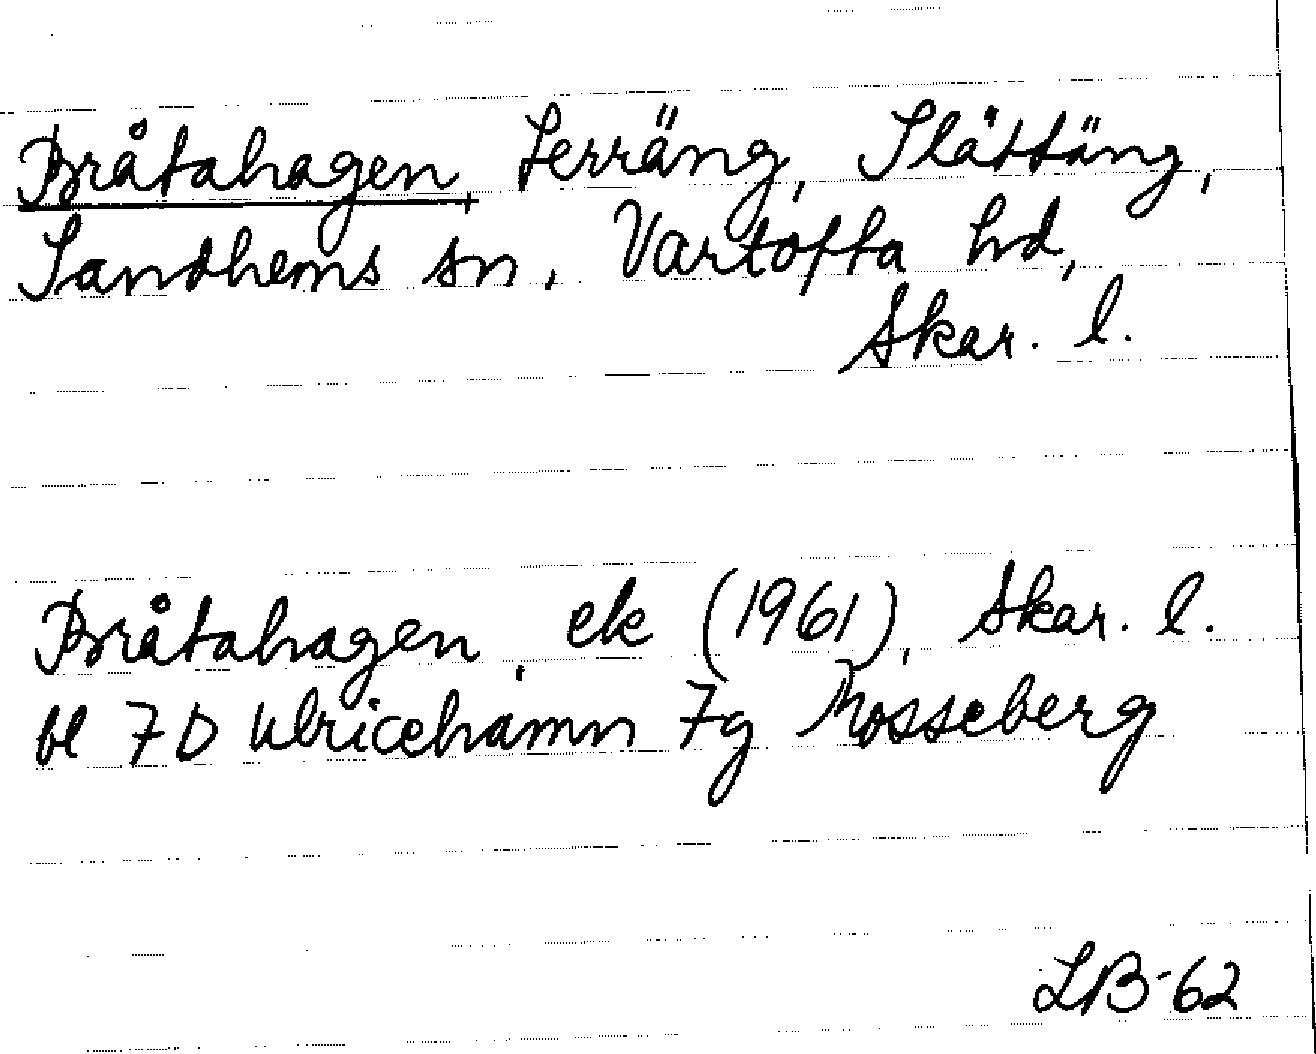 Bråtahagen, terräng, Slättäng,
Sandhems sn, Vartofta hd,
Skar. l.
Bråtahagen, ek (1961), Skar. l.
bl 7D Ulricehamn 7g Mosseberg
LB-62